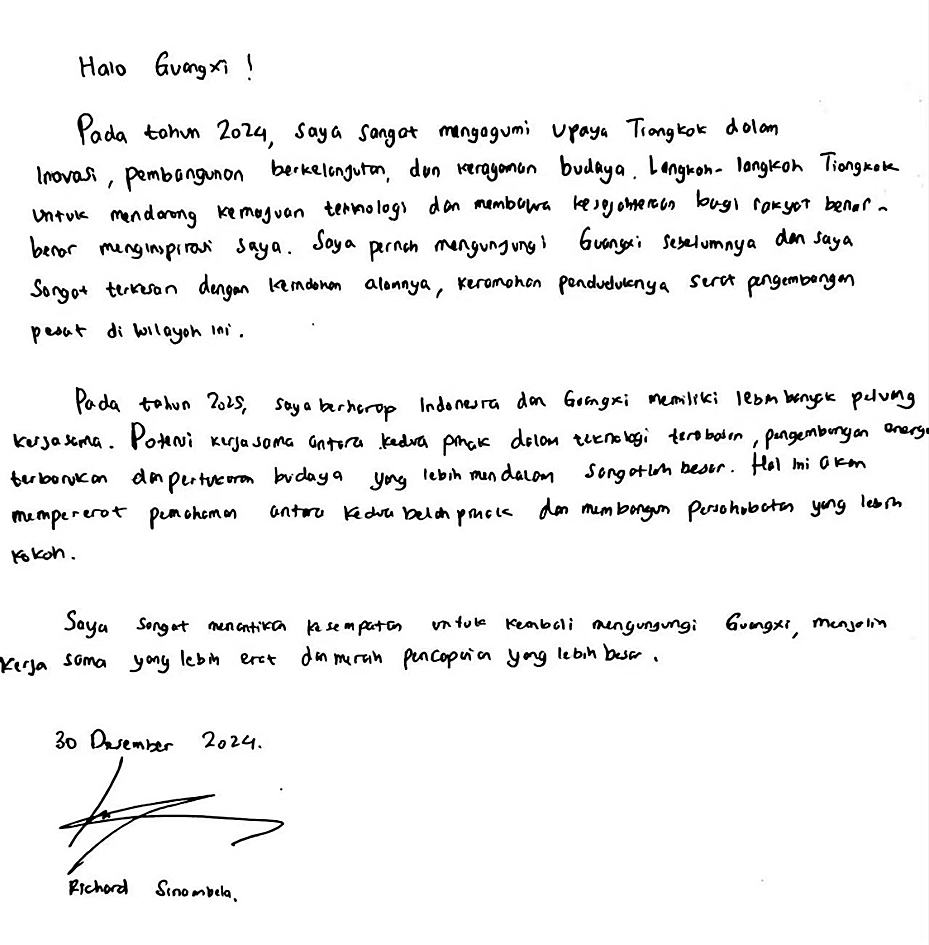 Halo Guangxi !
Pada tahun 2024, saya sangat mengagumi upaya Tiongkok dalam
Inovasi, pembangunan berkelanjutan, dan keragaman budaya. Langkah-langkah Tiongkok
Untuk mendorong kemajuan teknologi dan membawa kesejahteraan bagi rakyat benar-
benar menginspirasi saya. Saya pernah mengunjungi Guangxi sebelumnya dan saya
Sangat terkesan dengan keindahan alamnya, keramahan penduduknya serta pengembangan
pesat di wilayah ini.
Pada tahun 2025, saya berharap Indonesia dan Guangxi memiliki lebih banyak peluang
kerjasama. Potensi kerjasama antara kedua pihak dalam teknologi terobosan, pengembangan energi
terbarukan dan pertukaran budaya yang lebih mendalam sangatlah besar. Hal ini akan
mempererat pemahaman antara kedua belah pihak dan membangun persahabatan yang lebih
kokoh.
Saya sangat menantikan kesempatan untuk kembali mengunjungi Guangxi, menjalin
Kerja sama yang lebih erat dan meraih pencapaian yang lebih besar.
30 Desember 2024.
Richard Sinambela.